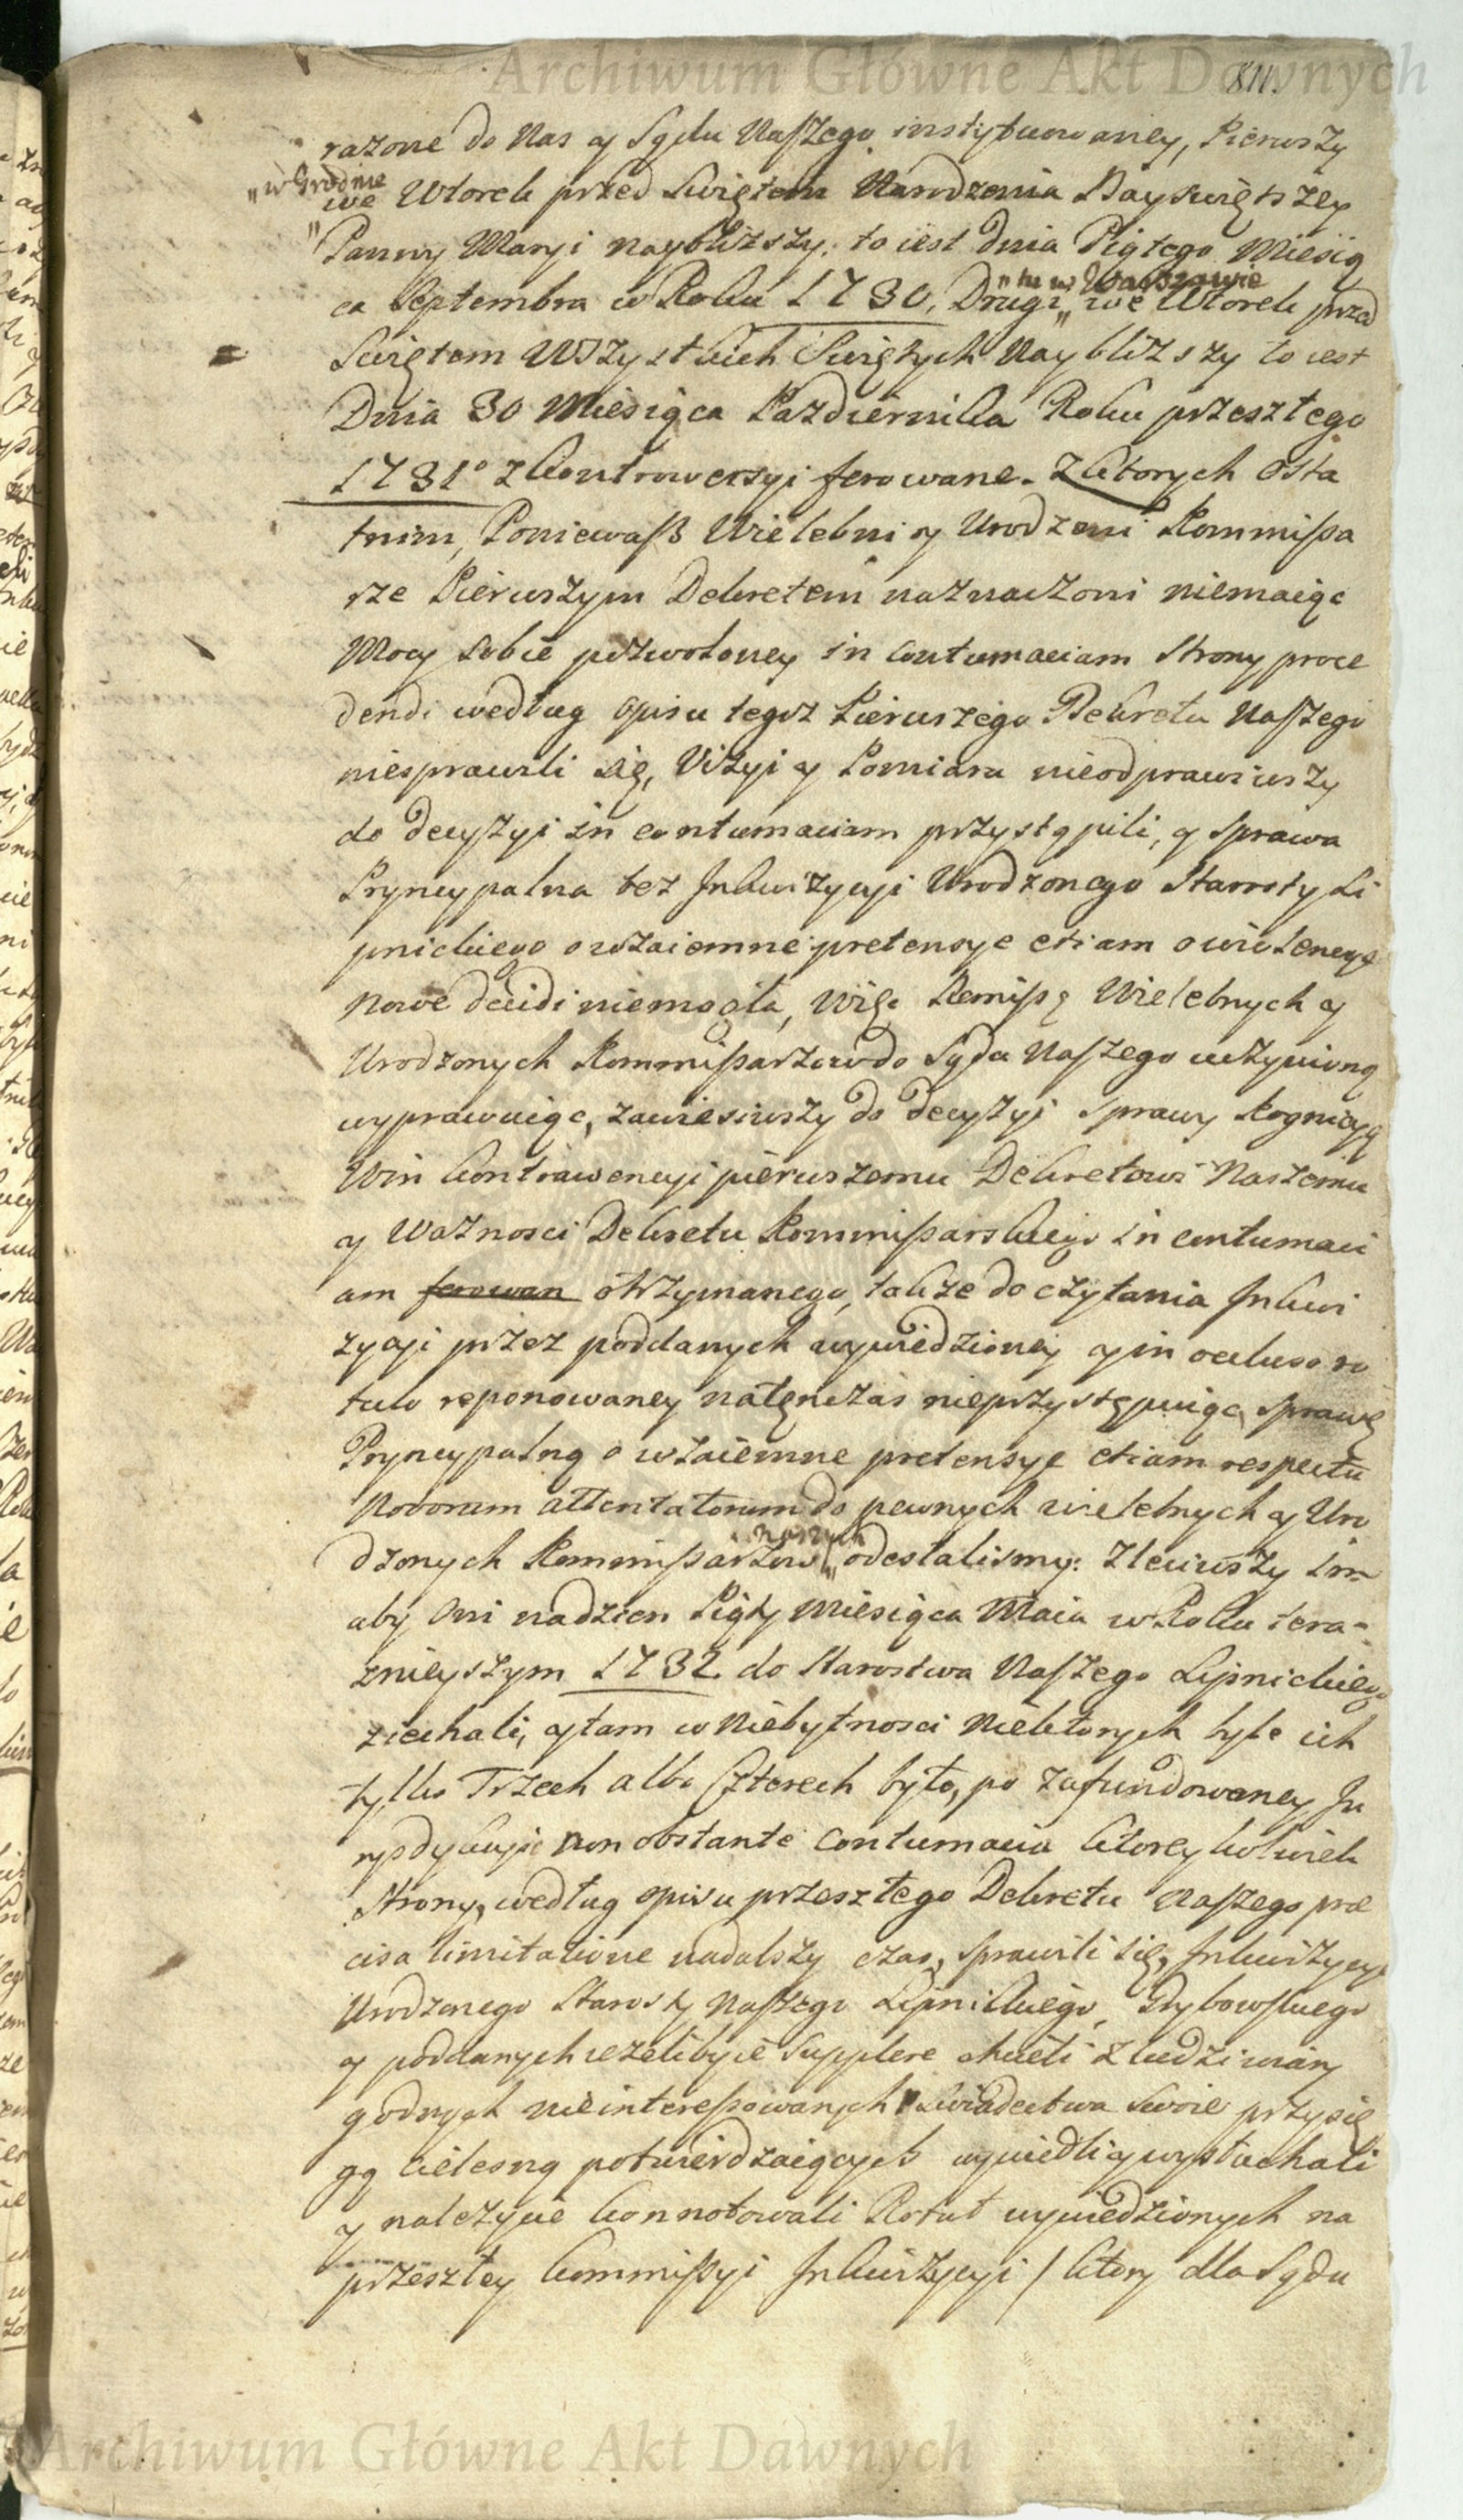 Archiwum Główne Akt Dawnych
811.
razone do Nas y Sądu Naszego instytuowaney, Pierwszy
„w Grodnie
we Wtorek przed Swiętem Narodzenia Nayswiętszey
„Panny Maryi naybliższy. to iest dnia Piątego Miesią
„tu w Warszawie
ca Septembra w Roku 1730. Drugi„ we Wtorek przed
Swiętem Wszystkich Swiętych Naybliższy to iest
Dnia 30 Miesiąca Pazdziernika Roku przeszłego
1731° z kontrowersyi ferowane. Z ktorych Osta
tnim, Poniewaß Wielebni y Urodzeni Kommißa
rze Pierwszym Dekretem naznaczoni niemaiąc
Mocy sobie pozwoloney in contumaciam Strony proce
dendi według opisu tegoz Pierwszego Dekretu Naszego
niesprawili się, Vizyi y Pomiaru nieodprawiwszy
do decyzyi in contumaciam przystąpili, y sprawa
Pryncypalna bez Inkwizycyi Urodzonego Starosty Li
pnickiego o wzaiemne pretensye etiam o wiolencye
nowe decidi niemogła, więc Remißę Wielebnych y
Urodzonych Kommißarzow do Sądu Naszego uczynioną
wyprawuiąc, zawiesiwszy do decyzyi sprawy Kognicyą
Win kontrawencyi pierwszemu Dekretowi Naszemu
y Ważnosci Dekretu Kommißarskiego in contumaci
am ferowan otrzymanego, także do czytania Inkwi
zycyi przez poddanych wywiedzioney y in ocluso ro
tulo reponowaney natęnczas nieprzystępuiąc, sprawę
Pryncypalną o wzaiemne pretensye etiam respectu
Novorum attentatorum do pewnych wielebnych y Uro
naszych
dzonych Kommißarzow„ odesłalismy: zleciwszy Im
aby Oni nadzien Piąty Miesiąca Maia w Roku tera-
znieyszym 1732 do Starostwa Naszego Lipnickiego
ziechali, y tam w Niebytnosci Niektorych byle ich
tylko Trzech albo Czterech było, po zafundowaney Ju
rysdykcyi non obstante contumacia ktoreykolwiek
Strony, według opisu przeszłego Dekretu Naszego præ
cisa limitatione nadalszy czas, sprawili się, Inkwizycye
Urodzonego Starosty Naszego Lipnickiego, Grzybowskiego
y poddanych iezeliby ie supplere chcieli z ludzi wiary
godnych nieinteressowanych swiadectwa swoie przysię
gą cielesną potwierdzaiących wywiedli y wysłuchali
y należycie konnotowali Rotuł wywiedzionych na
przeszłey kommißyi Inkwizycyi / ktory dla Sądu
Archiwum Główne Akt Dawnych